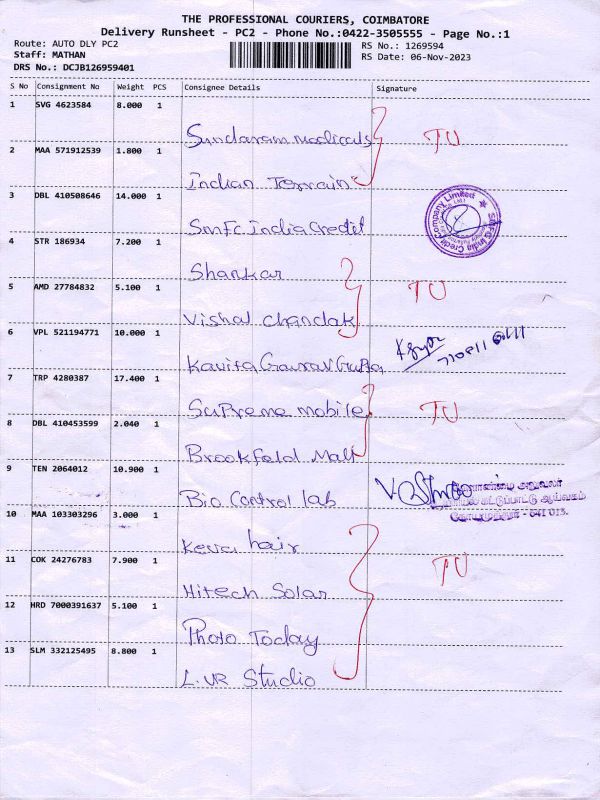 THE PROFESSIONAL COURIERS, COIMBATORE
Delivery Runsheet - PC2 - Phone No.:0422-3505555 - Page No.:1
Route: AUTO DLY PC2
Staff: MATHAN
DRS No.: DCJB126959401
RS No.: 1269594
RS Date: 06-Nov-2023
S No Consignment No Weight PCS Consignee Details Signature
1 SVG 4623584 8.000 1
Sundaram medicals TU
2 MAA 571912539 1.800 1
Indian Terrain
3 DBL 410508646 14.000 1
SMFC India Credit
4 STR 186934 7.200 1
Shankar
5 AMD 27784832 5.100 1 TU
Vishal chandak
6 VPL 521194771 10.000 1
Kavita Gaurav Gupta
7 TRP 4280387 17.400 1
SuPreme mobile TU
8 DBL 410453599 2.040 1
Brookfeld Mall
9 TEN 2064012 10.900 1
Bio Control lab
10 MAA 103303296 3.000 1
Keva hair
11 COK 24276783 7.900 1 TU
Hitech Solar
12 HRD 7000391637 5.100 1
Photo Today
13 SLM 332125495 8.800 1
L.VR Studio